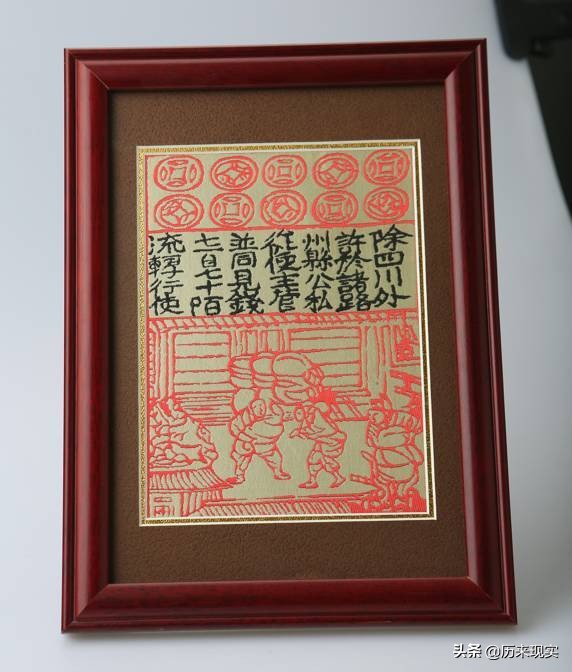 除四川外
許於諸路
州縣公私
從便主管
並同見錢
七百七十陌
流轉行使
头条 @历来现实